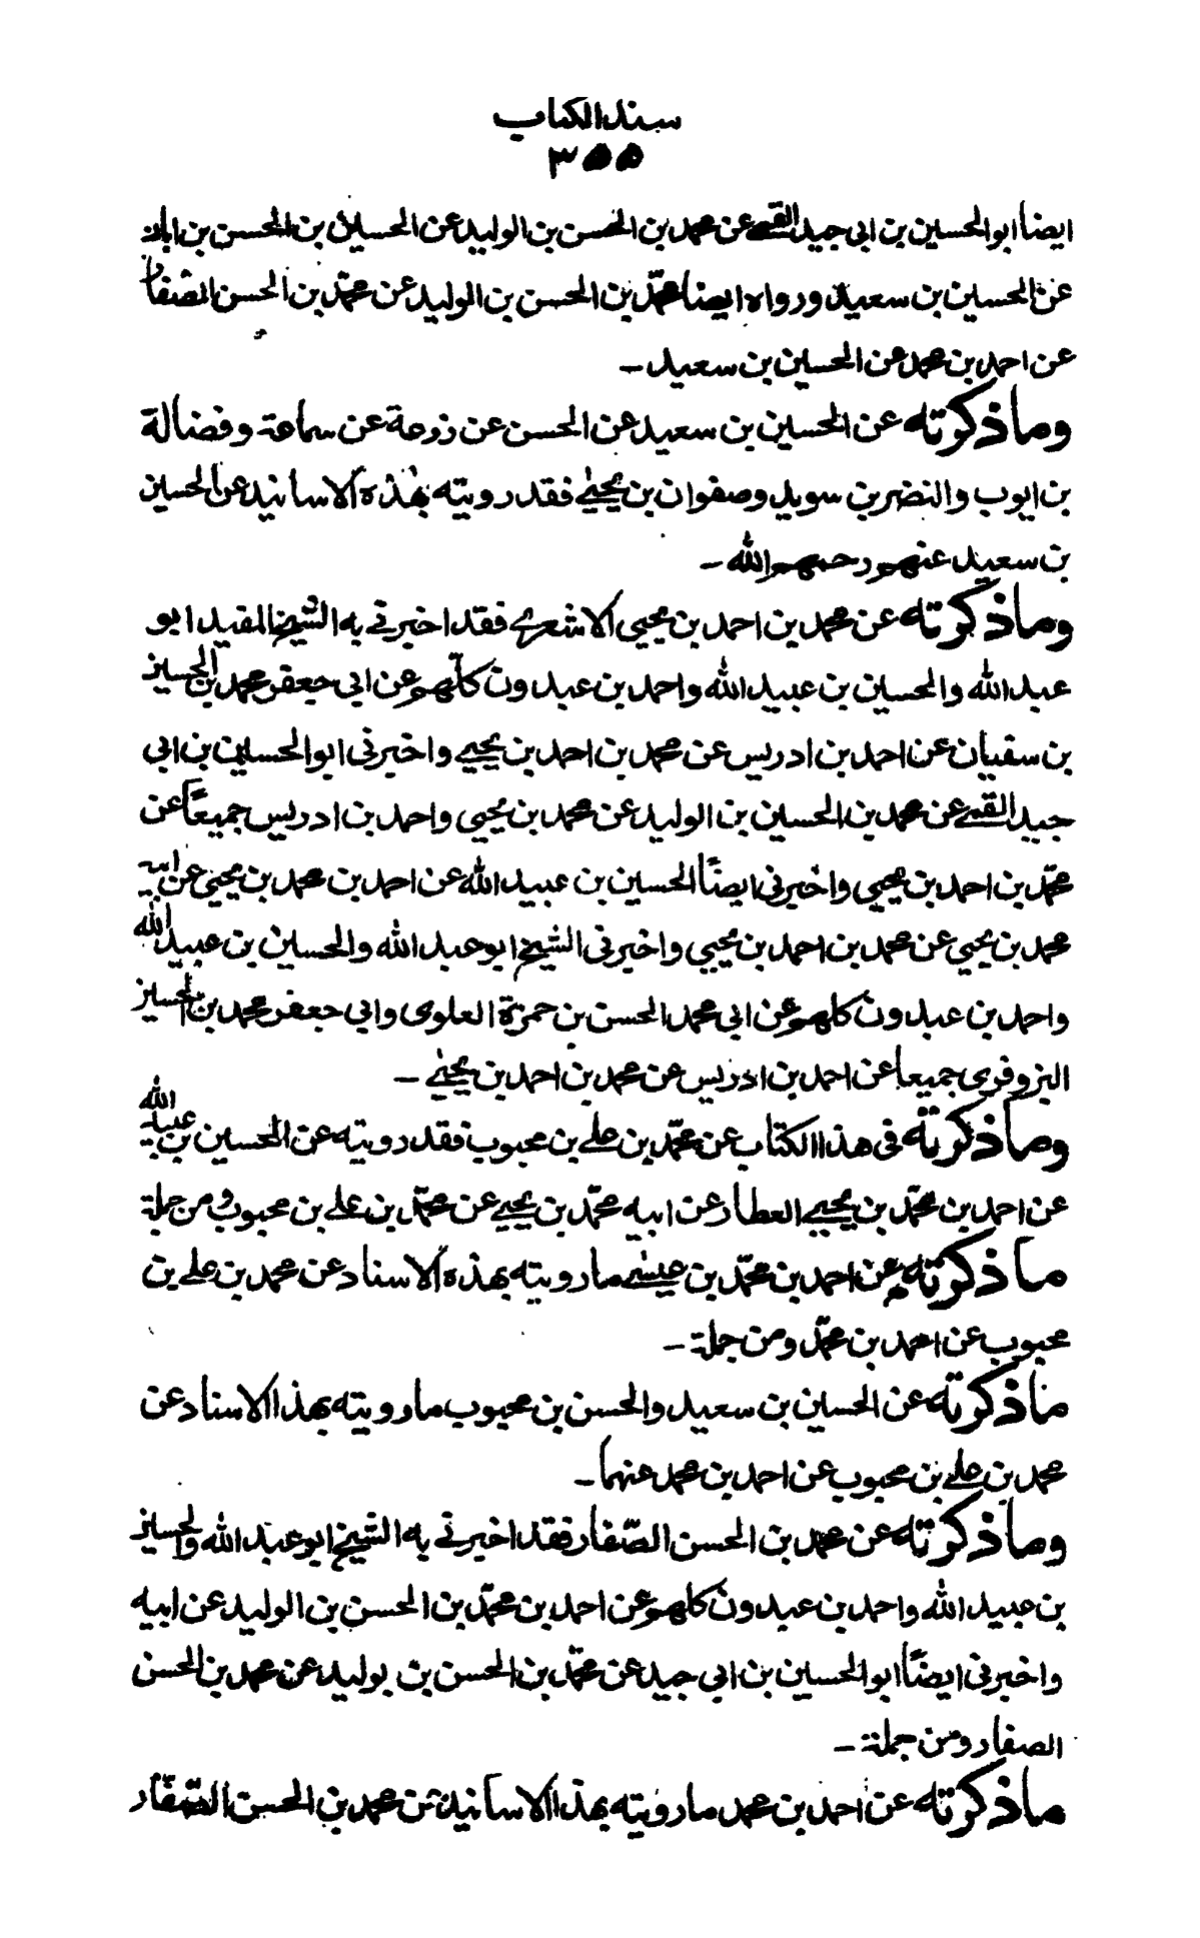 سند الكتاب
٣٥٥
ايضا ابو الحسين بن ابى جيد القمى عن محمد بن الحسن بن الوليد عن الحسين بن الحسن بن ابان
عن الحسين بن سعيد ورواه ايضا محمّد بن الحسن بن الوليد عن محمّد بن الحسن الصفار
عن احمد بن محمد عن الحسين بن سعيد -
وما ذكرته عن الحسين بن سعيد عن الحسن عن زرعة عن سماعة وفضالة
بن ايوب والنضر بن سويد وصفوان بن يحيٰى فقد رويته بهٰذه الاسانيد عن الحسين
بن سعيد عنهم رحمهم الله -
وما ذكرته عن محمد بن احمد بن يحيى الاشعرى فقد اخبرنى به الشيخ المفيد ابو
عبد الله والحسين بن عبيد الله واحمد بن عبدون كلّهم عن ابى جعفر محمد بن الحسين
بن سفيان عن احمد بن ادريس عن محمد بن احمد بن يحيى واخبرنى ابو الحسين بن ابى
جيد القمى عن محمد بن الحسين بن الوليد عن محمد بن يحيى واحمد بن ادريس جميعًا عن
محمّد بن احمد بن يحيى واخبرنى ايضًا الحسين بن عبيد الله عن احمد بن محمد بن يحيى عن ابيه
محمد بن يحيى عن محمد بن احمد بن يحيى واخبرنى الشيخ ابو عبد الله والحسين بن عبيد الله
واحمد بن عبدون كلهم عن ابى محمد الحسن بن حمزة العلوى وابى جعفر محمد بن الحسين
البزوفرى جميعا عن احمد بن ادريس عن محمد بن احمد بن يحيٰى -
وما ذكرته فى هذا الكتاب عن محمّد بن على بن محبوب فقد رويته عن الحسين بن عبيد الله
عن احمد بن محمّد بن يحيى العطار عن ابيه محمّد بن يحيى عن محمّد بن على بن محبوب ومن جملة
ما ذكرته عن احمد بن محمّد بن عيسٰى ما رويته بهذه الاسناد عن محمد بن على بن
محبوب عن احمد بن محمّد ومن جملة -
ما ذكرته عن الحسين بن سعيد والحسن بن محبوب ما رويته بهذا الاسناد عن
محمد بن على بن محبوب عن احمد بن محمد عنهما -
وما ذكرته عن محمد بن الحسن الصّفار فقد اخبرنى به الشيخ ابو عبد الله والحسين
بن عبيد الله واحمد بن عبدون كلهم عن احمد بن محمّد بن الحسن بن الوليد عن ابيه
واخبرنى ايضًا ابو الحسين بن ابى جيد عن محمّد بن الحسن بن بوليد عن محمد بن الحسن
الصفار ومن جملة -
ما ذكرته عن احمد بن محمد ما رويته بهذا الاسانيد عن محمد بن الحسن الصّفّار